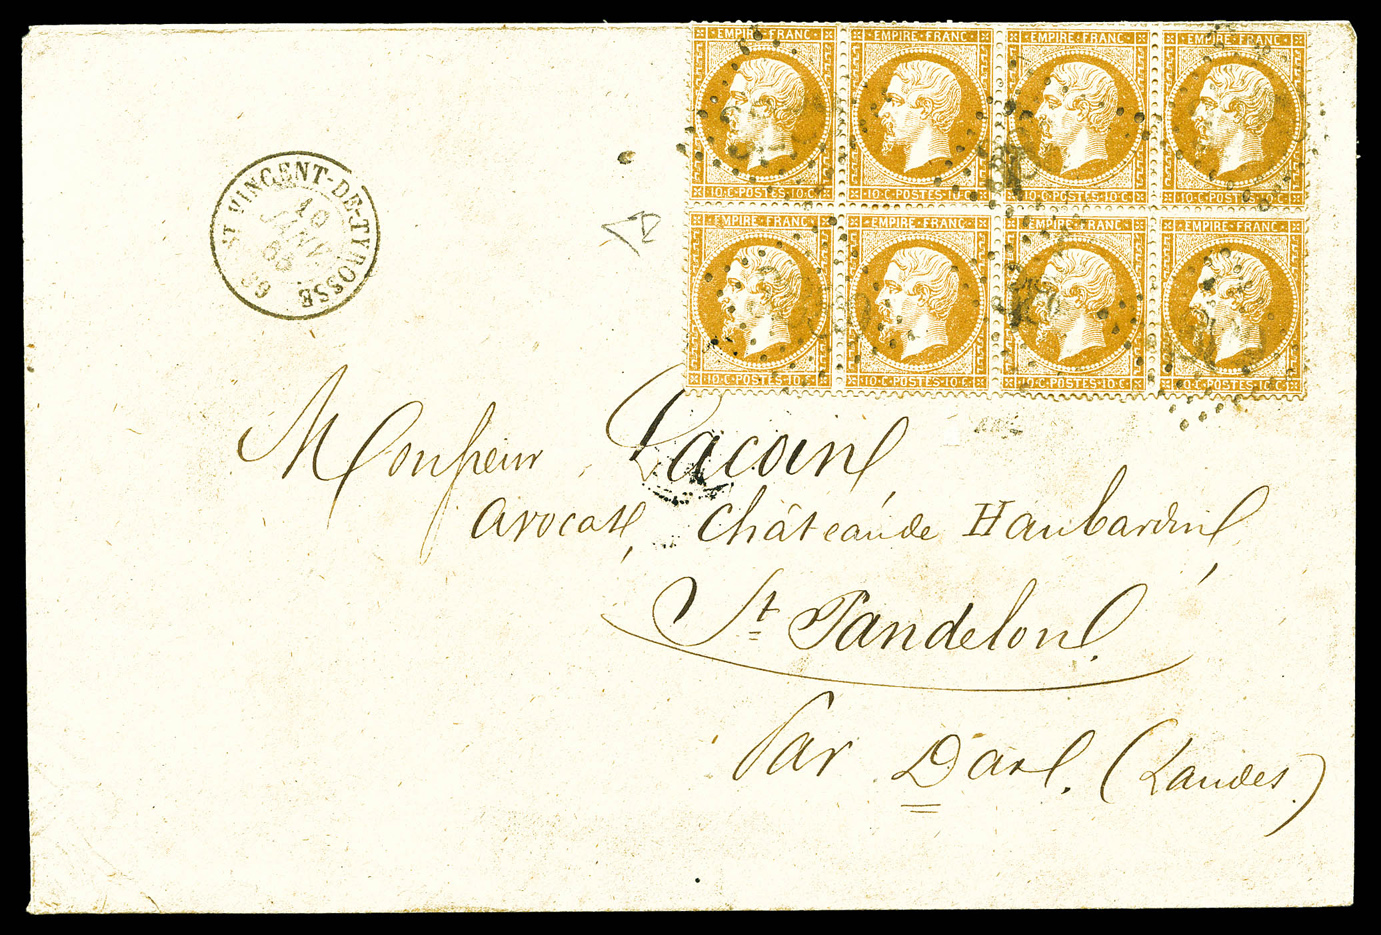 EMPIRE FRANC EMPIRE FRANC EMPIRE FRANC EMPIRE FRANC
10·C·POSTES·10·C 10·C·POSTES·10·C 10·C·POSTES·10·C 10·C·POSTES·10·C
EMPIRE FRANC EMPIRE FRANC EMPIRE FRANC EMPIRE FRANC
10·C·POSTES·10·C 10·C·POSTES·10·C 10·C·POSTES·10·C 10·C·POSTES·10·C
ST VINCENT-DE-TYROSSE
10
JANV.
Monsieur Lacoin
avocat, château de Haubardin
St Pandelon.
Par Dax. (Landes.)